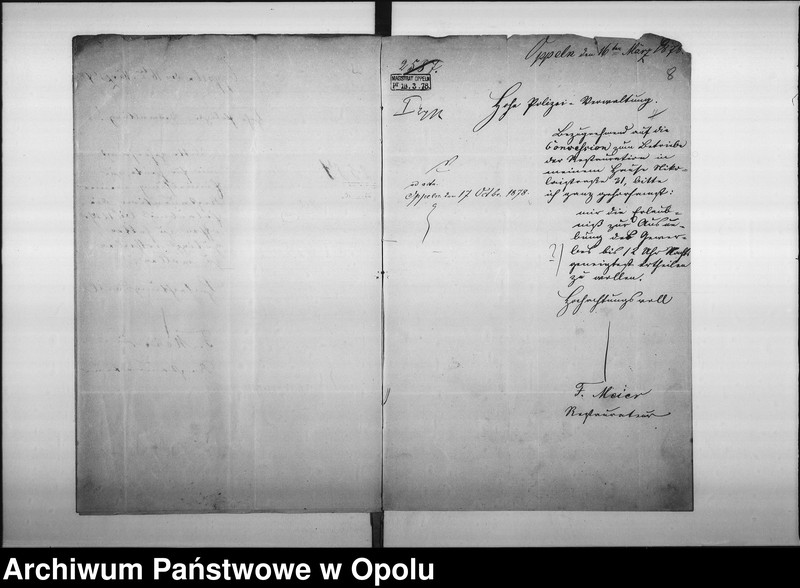 Oppeln den 16ten März 1878
8
2587.
MAGISTRAT OPPELN
pr 18. 3. 78.
Hohe Polizei-Verwaltung.
Bezugnehmend auf die
Concession zum Betriebe
der Restauration in
meinem Hause Niko-
laistraße 21, bitte
ich ganz gehorsamst:
mir die Erlaub-
niß zur Ausü-
bung des Gewer-
bes bis 12 Uhr Nachts
geneigtest ertheilen
zu wollen.
Hochachtungsvoll
F. Maier
Restaurateur
Oppeln den 17 Octbr. 1878.
Archiwum Państwowe w Opolu